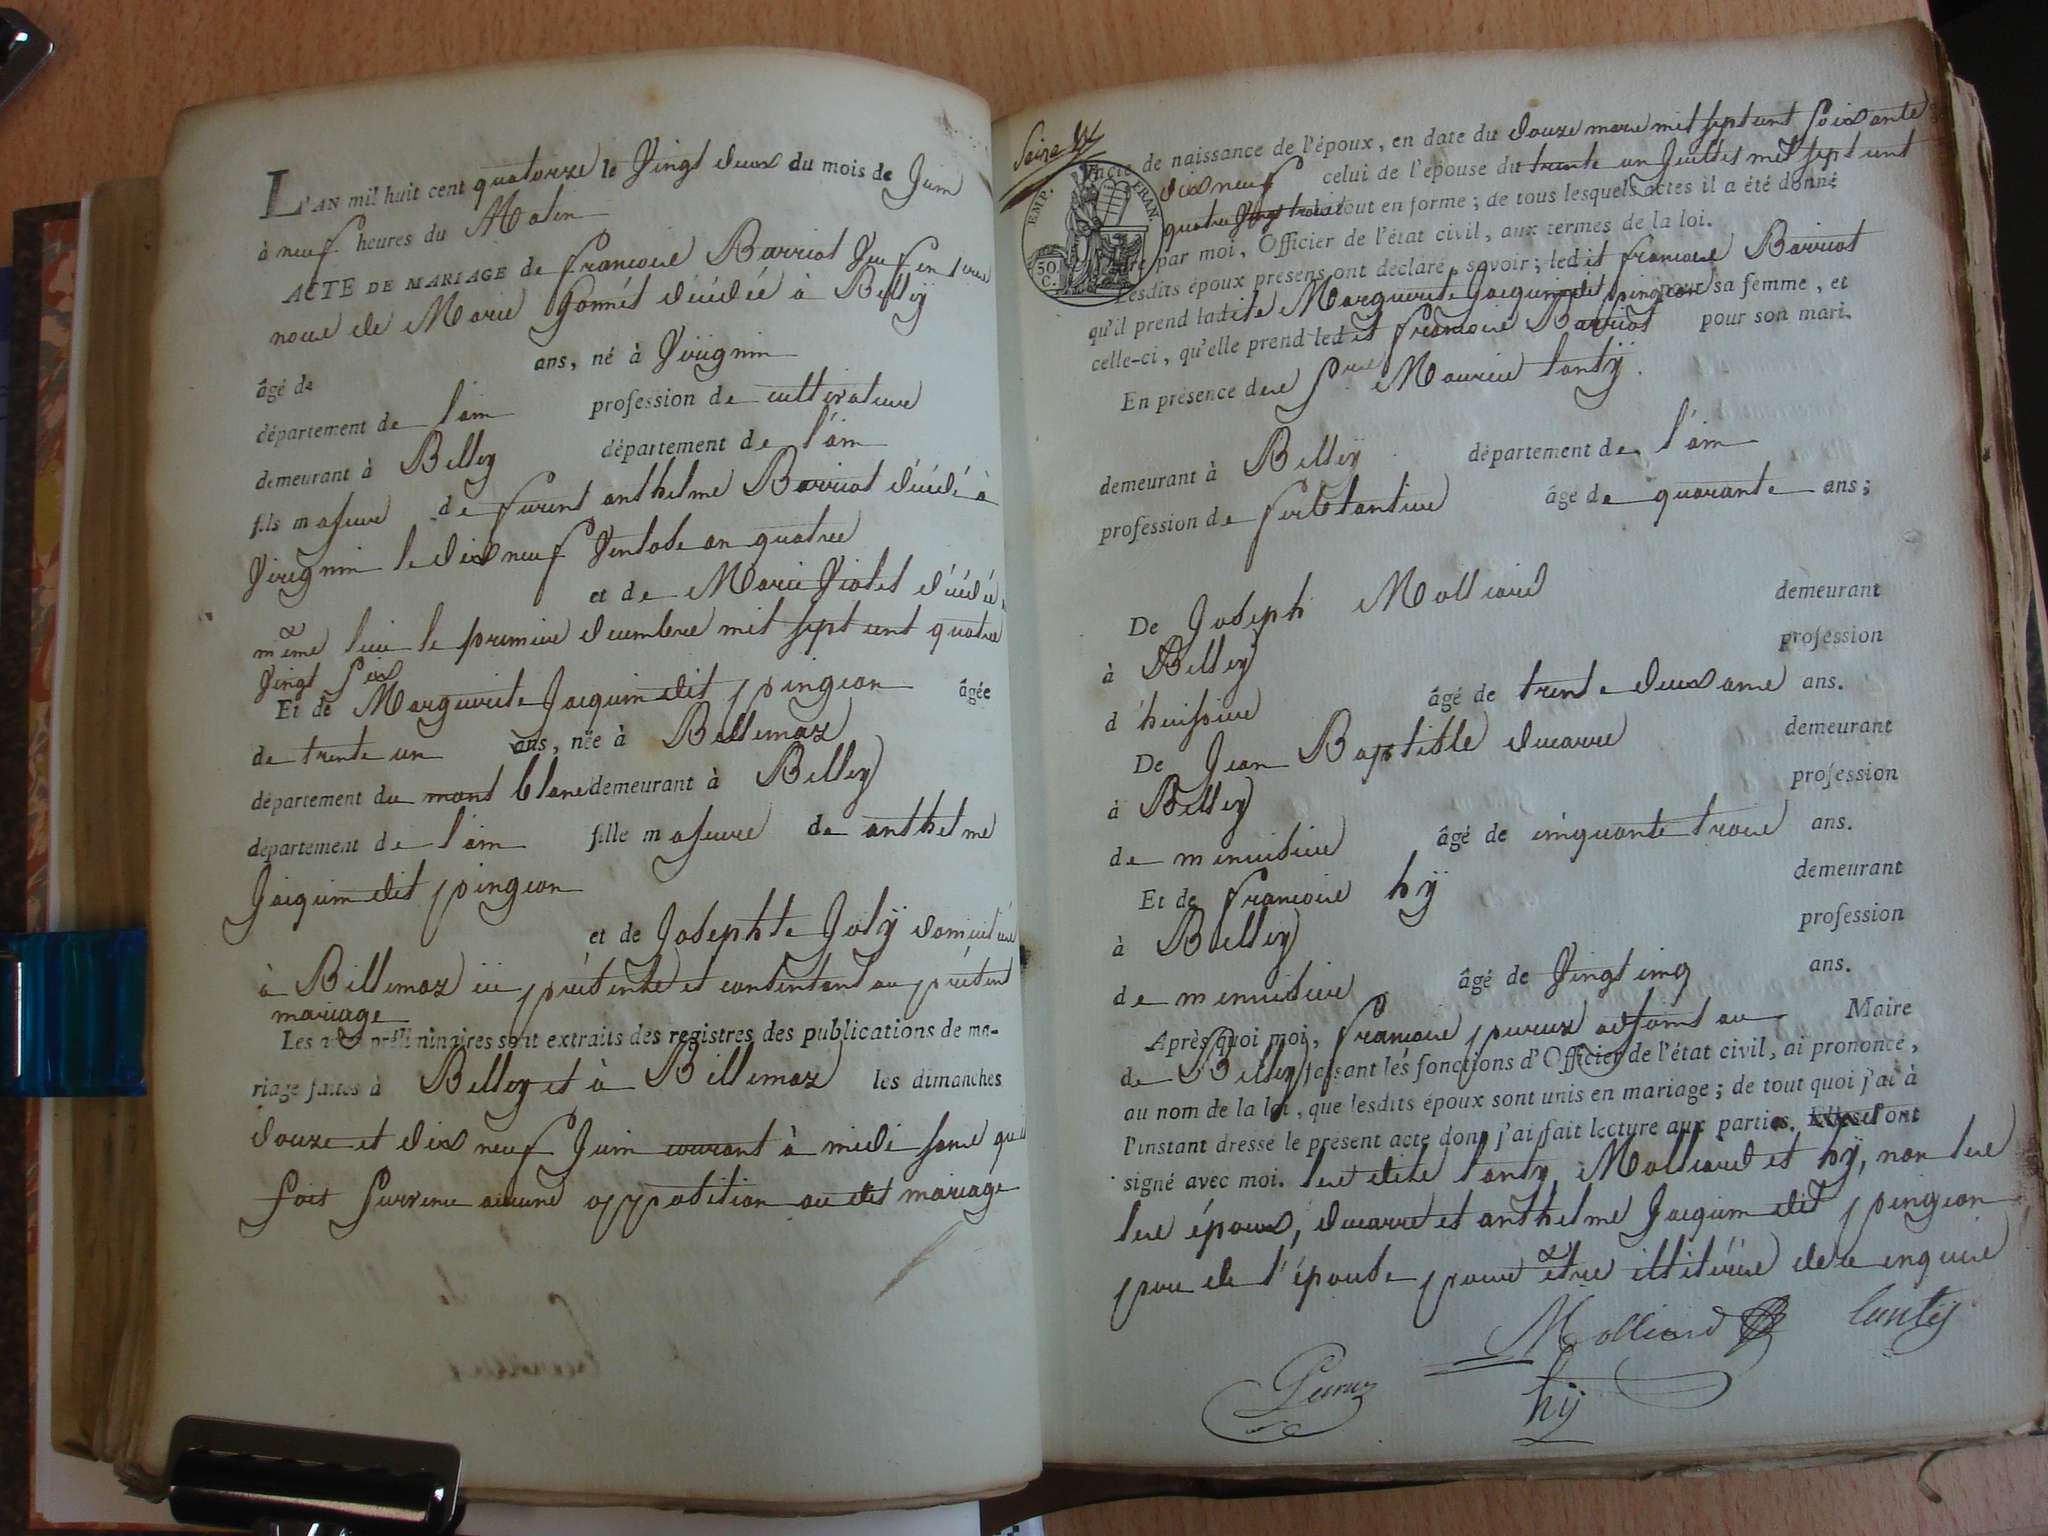 L'AN mil huit cent quatorze le Vingt deux du mois de Juin
à neuf heures du Matin
ACTE DE MARIAGE de francois Barriot Veuf en
noces de Marie Gonnét décédée à Belleÿ
âgé de ans, né à Virignin
département de l'ain profession de cultivateur
demeurant à Belley département de l'ain
fils majeur de furent anthelme Barriot décédé à
Viregnin le dix neuf Ventose an quatre
et de Marie Violet décédée
même lieu le premier decembre mil sept cent quatre
Vingt six
Et de Marguerite Jacquin dit pingeon âgée
de trente un ans, née à Billemaz
département du mont blanc demeurant à Belley
département de l'ain fille majeure de anthelme
Jacquin dit pingeon
et de Josephte Jolÿ domiciliés
à Billemaz ici présents et consentant au présent
mariage
Les actes préliminaires sont extraits des registres des publications de ma-
riage faites à Belley et à Billemaz les dimanches
douze et dix neuf Juin courant à midi sans qu'il
soit survenu aucune opposition au dit mariage
Seize
EMP. FRAN.
50 C.
acte de naissance de l'époux, en date du douze mars mil sept cent soixante
dix neuf celui de l'épouse du trente un Juillet mil sept cent
quatre Vingt trois le tout en forme; de tous lesquels actes il a été donné
lecture par moi, Officier de l'état civil, aux termes de la loi.
Lesdits époux présens ont déclaré, savoir; ledit francois Barriot
qu'il prend ladite Marguerite Jacquin dit pingeon pour sa femme, et
celle-ci, qu'elle prend ledit francois Barriot pour son mari.
En présence des Srs Maurice lantÿ.
demeurant à Belleÿ département de l'ain
profession de ferblantier âgé de quarante ans;
De Joseph Molliard demeurant
à Belley profession
d'huissier âgé de trente deux ans ans.
De Jean Baptiste ducarre demeurant
à Belley profession
de menuisier âgé de cinquante trois ans.
Et de francois hÿ demeurant
à Belley profession
de menuisier âgé de Vingt cinq ans.
Après quoi moi, francois peruz adjoint au Maire
de Belley faisant les fonctions d'Officier de l'état civil, ai prononcé,
au nom de la loi, que lesdits époux sont unis en mariage; de tout quoi j'ai à
l'instant dressé le présent acte dont j'ai fait lecture aux parties. ont
signé avec moi. les dits lanty, Molliard et hÿ, non les
les époux, ducarre et anthelme Jacquin dit pingeon
père de l'épouse pour être illitérés de ce enquis
Molliard lantÿ
Peruz hÿ